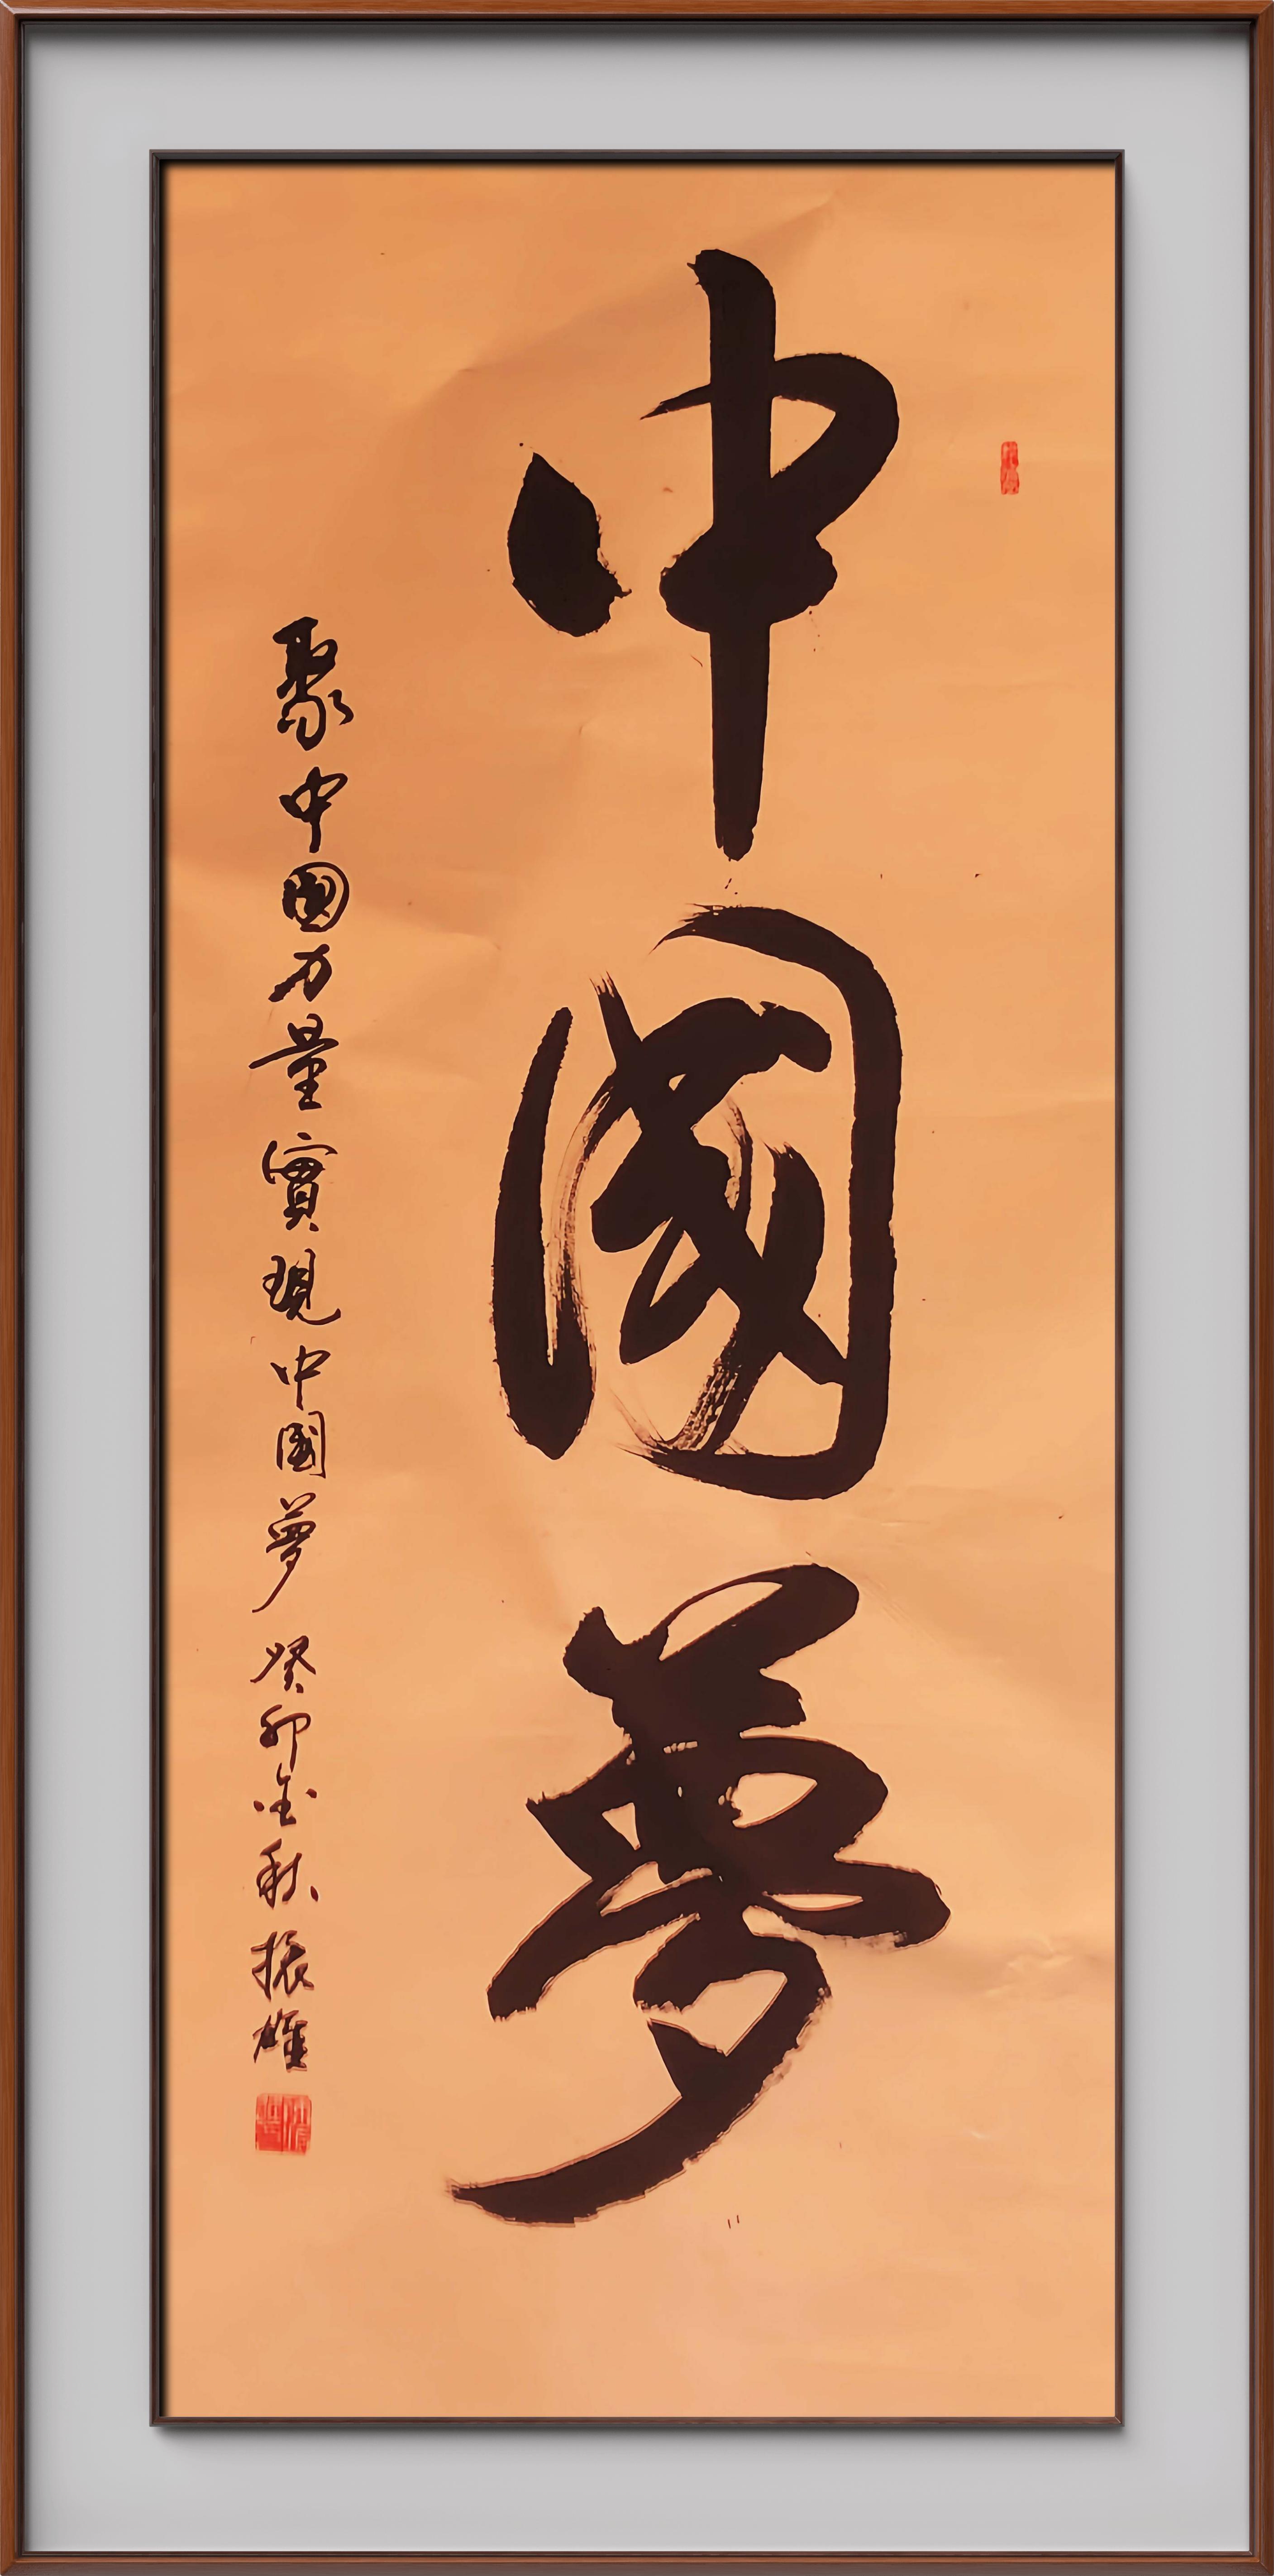 中國夢
聚中國力量實現中國夢 癸卯金秋 振雄